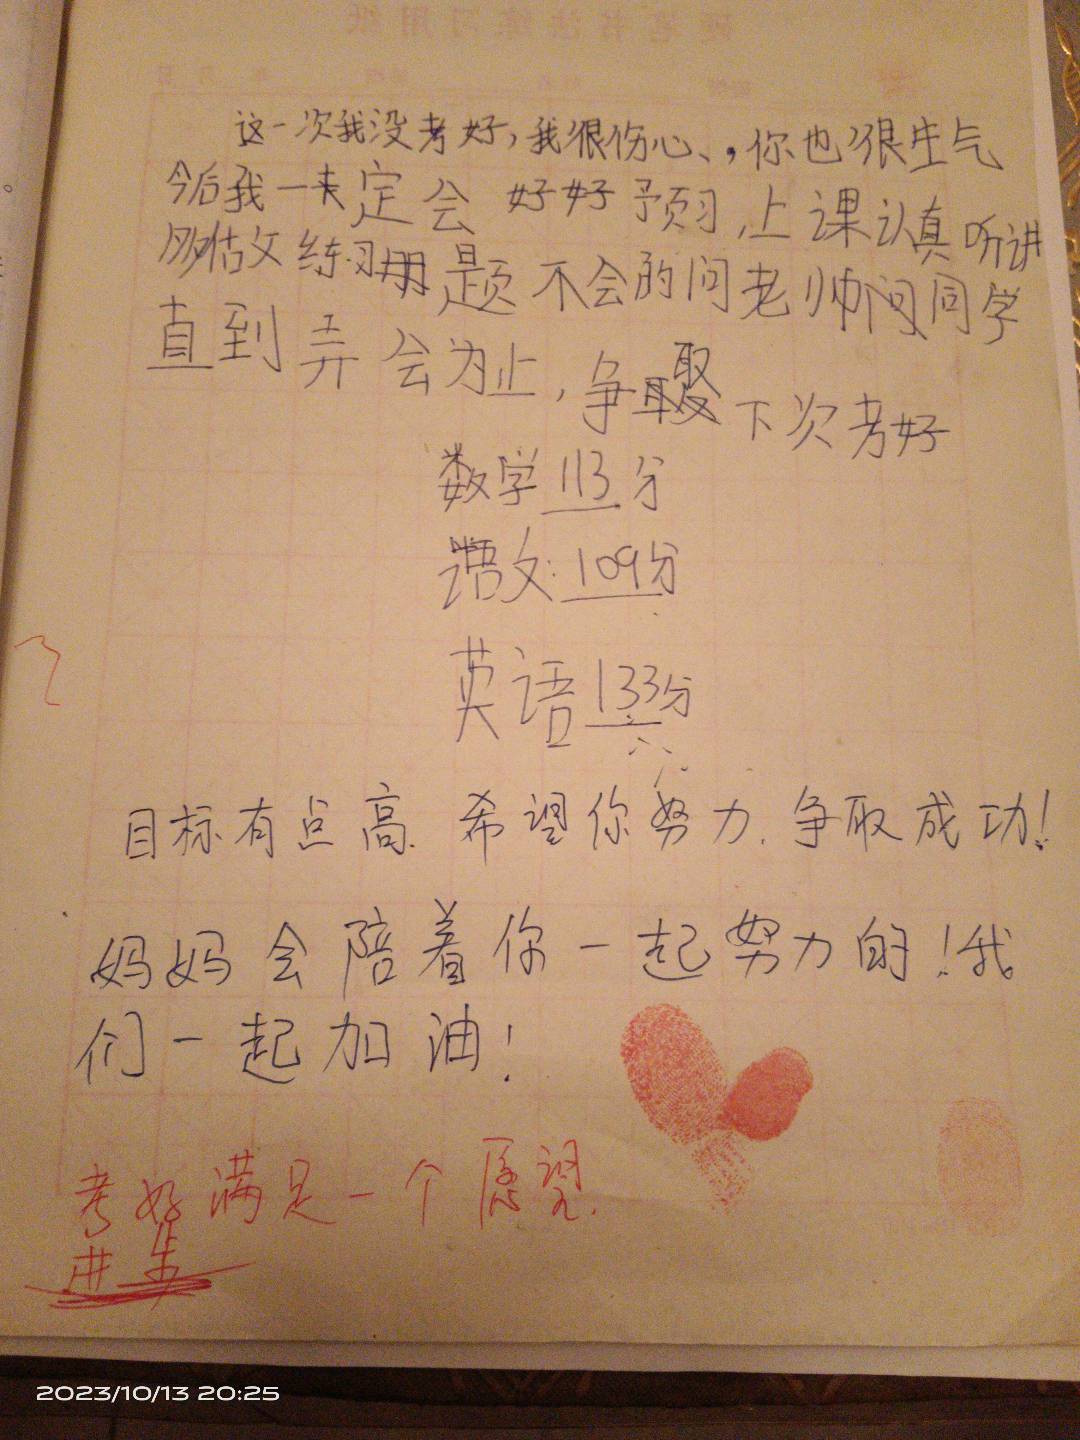 硬笔书法练习用纸
这一次我没考好,我很伤心、,你也很生气
今后我一定会 好好 预习,上课认真听讲
多做练习册题不会的问老帅问同学
直到弄会为止,争取下次考好
数学113分
语文:109分
英语133分
目标有点高.希望你努力.争取成功!
妈妈会陪着你一起努力的!我
们一起加油!
考好满足一个愿望.
进步
2023/10/13 20:25